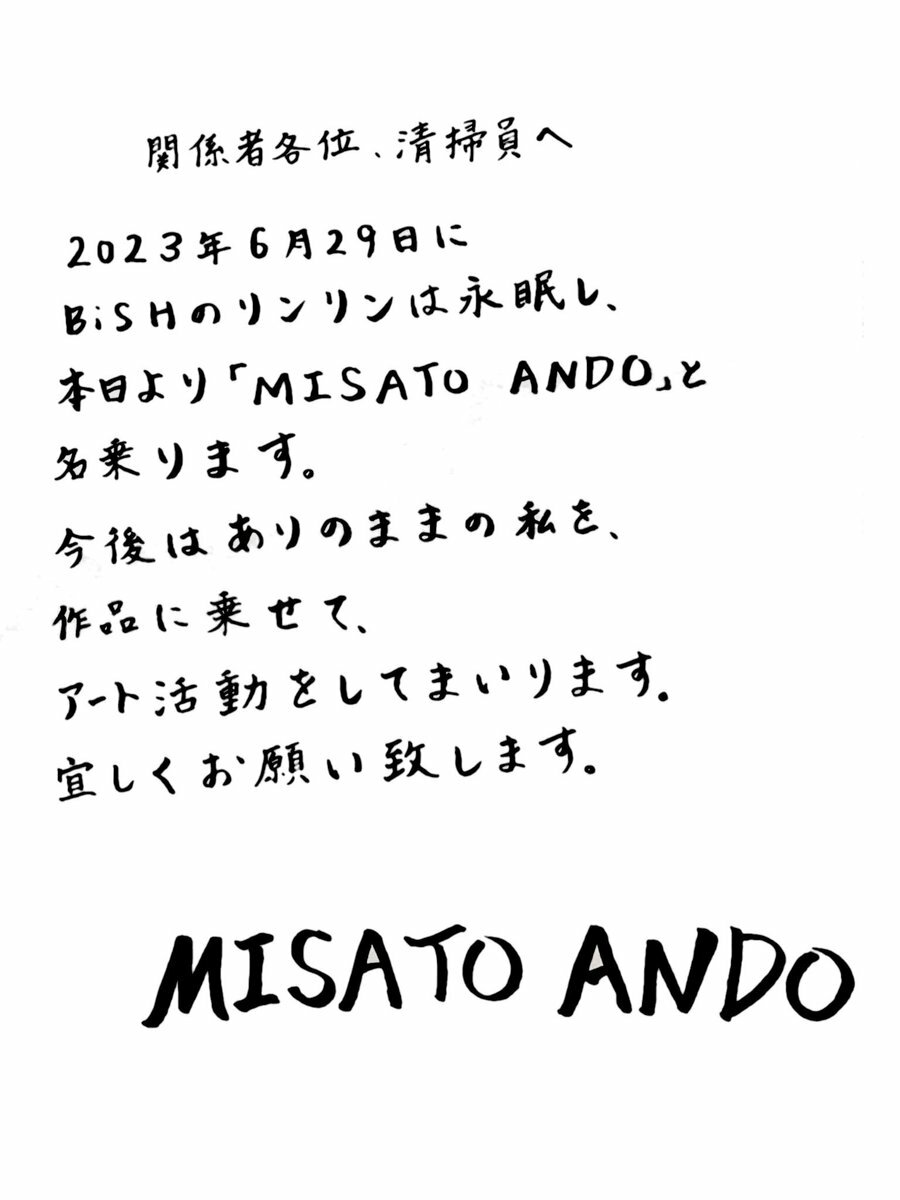 関係者各位、清掃員へ
2023年6月29日に
BiSHのリンリンは永眠し、
本日より「MISATO ANDO」と
名乗ります。
今後はありのままの私を、
作品に乗せて、
アート活動をしてまいります。
宜しくお願い致します。
MISATO ANDO